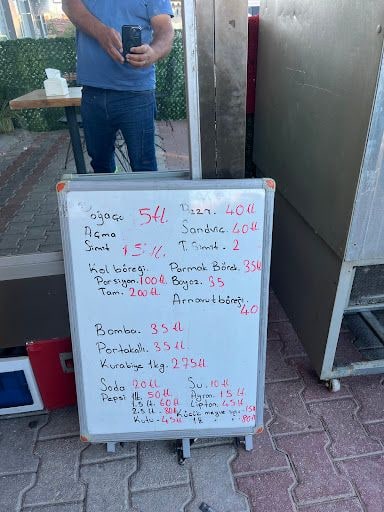 Poğaça 5tl
Açma
Simit 15tl.
Pizza. 40tl
Sandviç. 40tl
T. Simit. 2
Kol böreği.
Porsiyon. 100tl
Tam. 200tl
Parmak Börek. 35tl
Boyoz. 35
Arnavut böreği.
40
Bomba. 35tl
Portakallı. 35tl.
Kurabiye 1kg. 275tl
Soda 20tl
Pepsi 1lt. 50tl
1.5 lt. 60tl
2.5 lt. 80tl
Kutu. 45tl
Su. 10tl
Ayran. 15tl
Lipton. 45tl
Küçük meyve 15tl
80tl